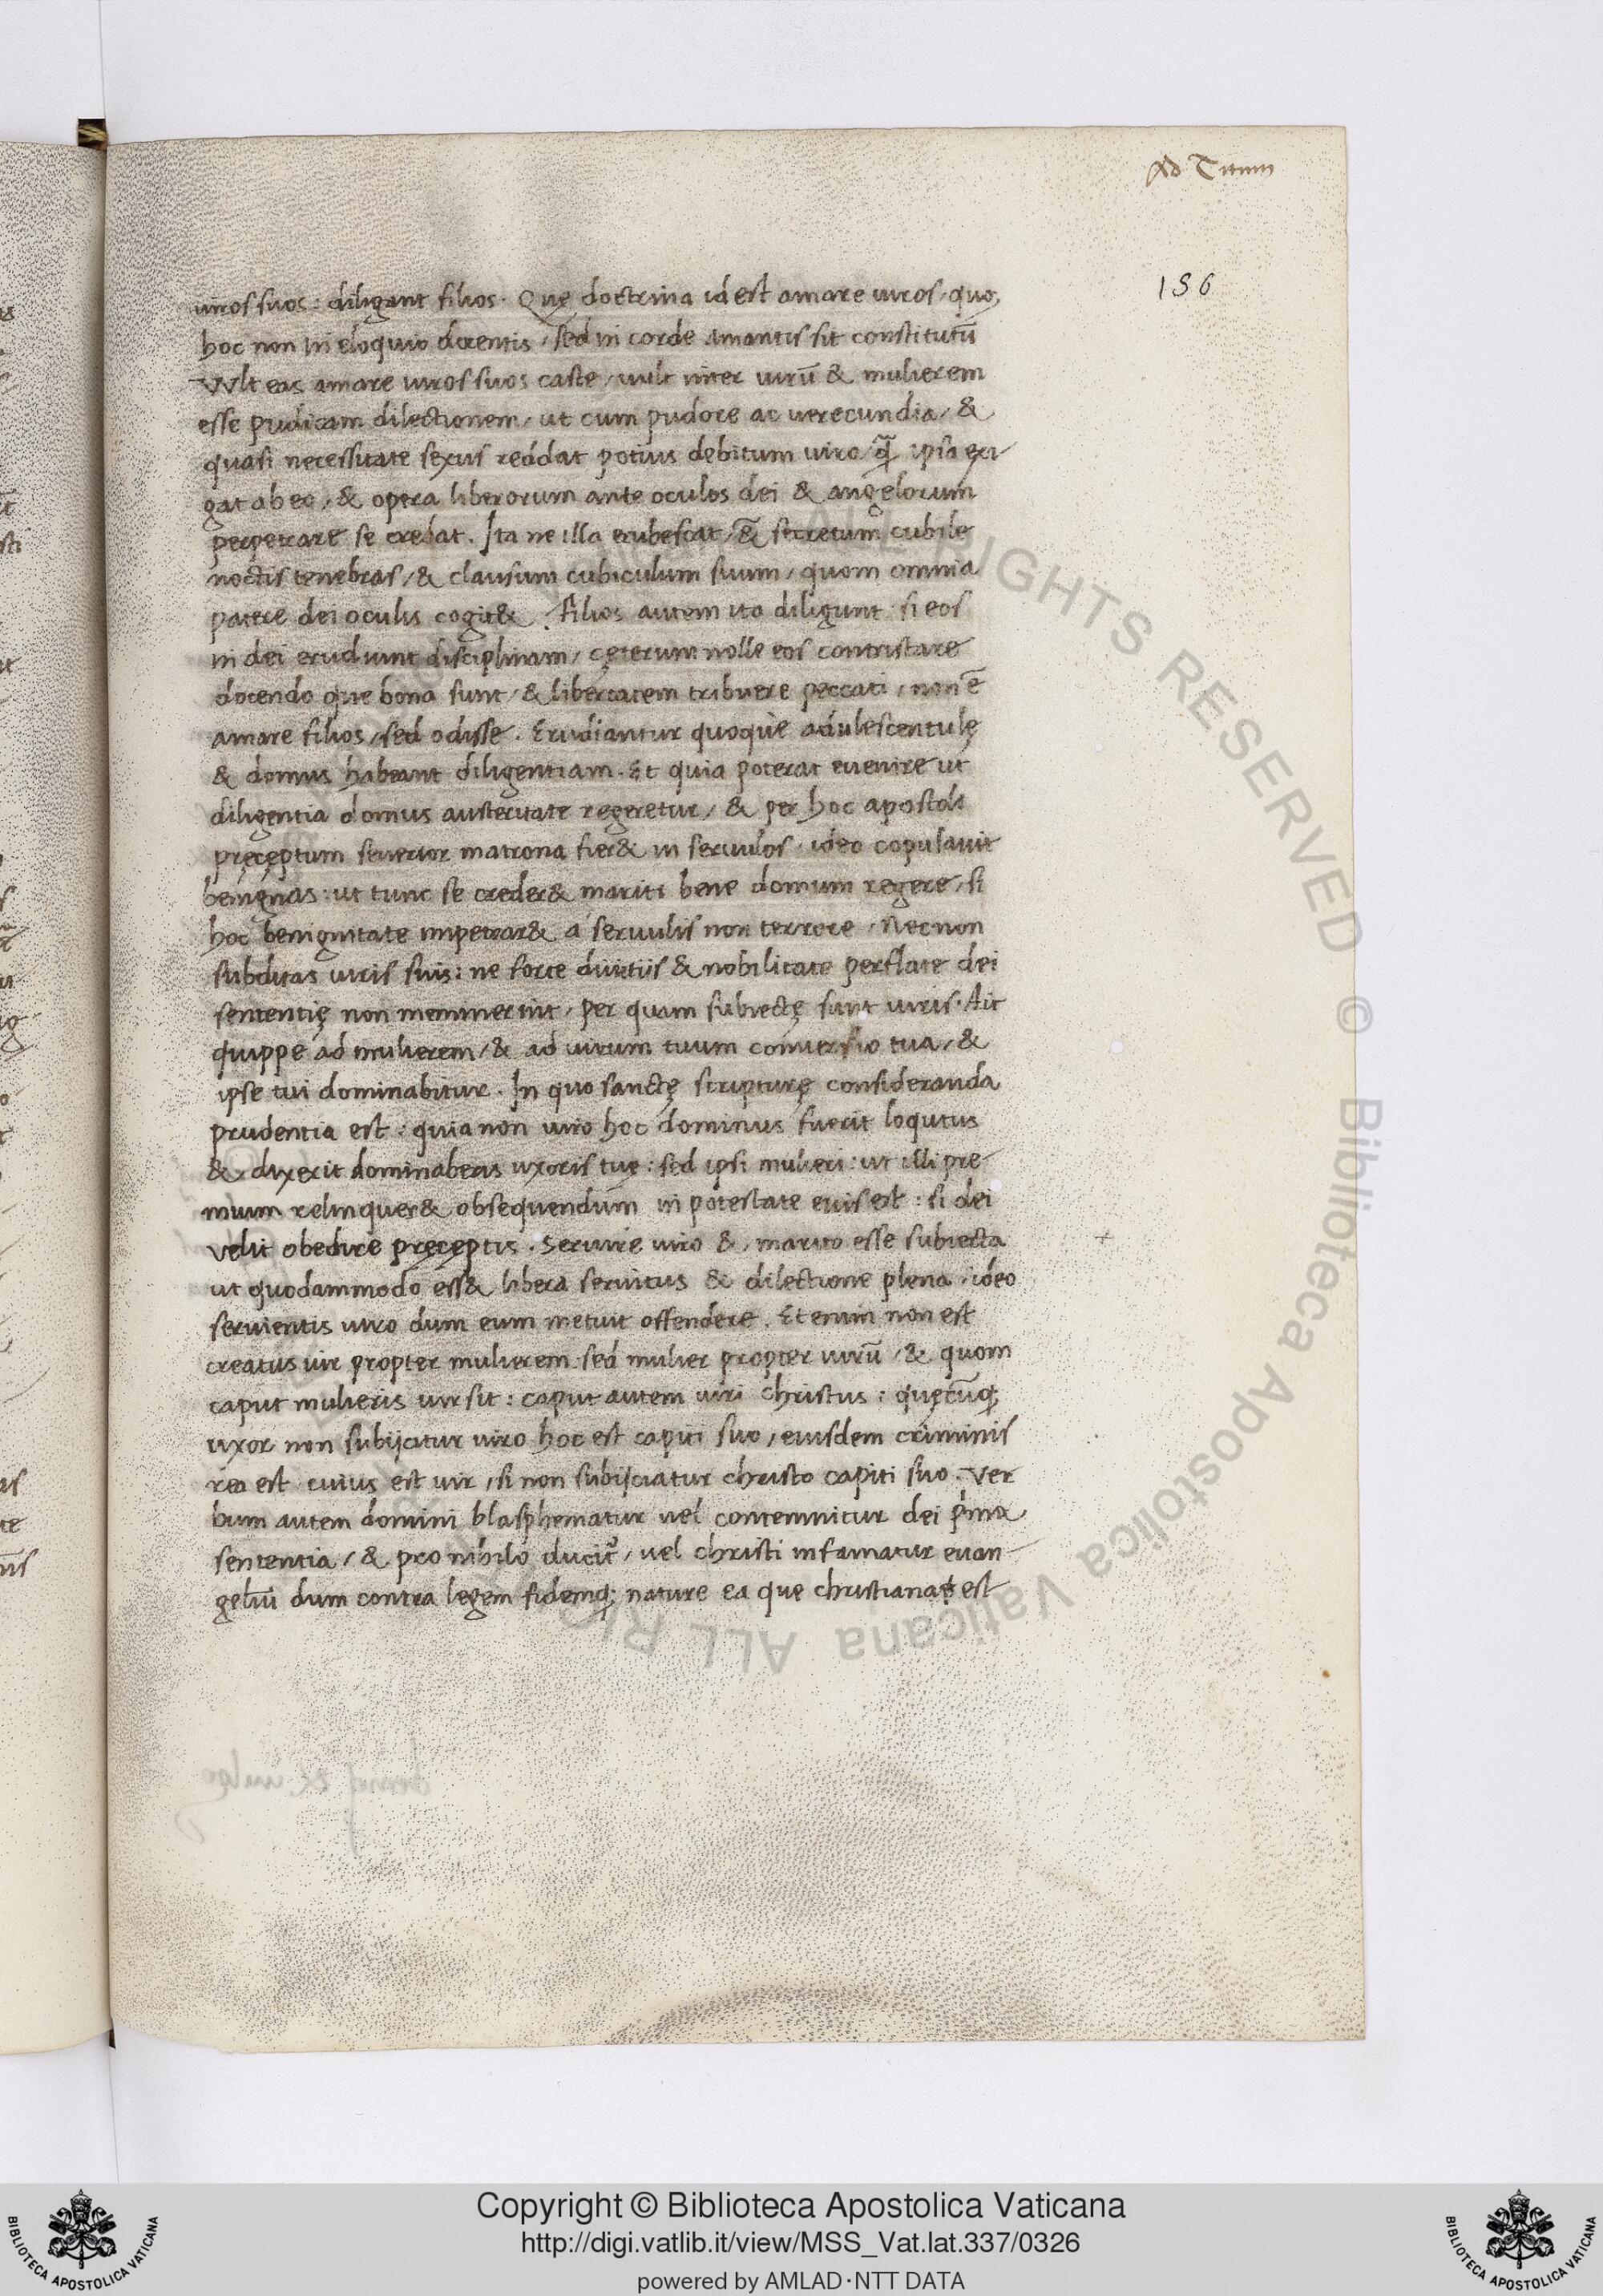 Ad Titum
156
viros suos: diligant filios. Quę doctrina id est amare viros, quoq;
hoc non in eloquio docentis, sed in corde amantis sit constitutū
Vvlt eas amare viros suos caste, vult inter virū & mulierem
esse pudicam dilectionem, ut cum pudore ac verecundia, &
quasi necessitate sexus reddat potius debitum viro q̄ ipsa exi-
gat ab eo, & opera liberorum ante oculos dei & angelorum
perpetrare se credat. Ita ne illa erubescat, & secretum cubile
noctis tenebras, & clausum cubiculum suum, quom omnia
patere dei oculis cogit&. Filios autem ita diligunt si eos
in dei erudiunt disciplinam, cęterum nolle eos contristare
docendo que bona sunt, & libertatem tribuere peccati, non ē
amare filios, sed odisse. Erudiantur quoque adulescentulę
& domus habeant diligentiam. Et quia poterat evenire ut
diligentia domus austeritate regeretur, & per hoc apostoli
pręceptum severior matrona fier& in servulos, ideo copulavit
benignas: ut tunc se creder& mariti bene domum regere, si
hoc benignitate impetrar& a servulis non terrore. Necnon
subditas viris suis: ne forte divitiis & nobilitate perflate dei
sententię non meminerint, per quam subiectę sunt viris. Ait
quippe ad mulierem, & ad virum tuum conversio tua, &
ipse tui dominabitur. In quo sanctę scripturę consideranda
prudentia est: quia non viro hoc dominus fuerit loqutus
& dixerit dominaberis uxoris tuę: sed ipsi mulieri: ut illi pre-
mium relinquer& obsequendum in potestate eius est: si dei
velit obedire pręceptis. Servire viro &, marito esse subiecta
ut quodammodo ess& libera servitus & dilectione plena. ideo
servientis viro dum eum metuit offendere. Etenim non est
creatus vir propter mulierem sed mulier propter virū, & quom
caput mulieris vir sit: caput autem viri christus: quęcūq;
uxor non subijcitur viro hoc est capiti suo, eiusdem criminis
rea est cuius est vir, si non subijciatur christo capiti suo. Ver
bum autem domini blasphematur vel contemnitur dei p̃ma
sententia, & pro nihilo ducit̃, vel christi infamatur evan-
geliū dum contra legem fidemq; nature ea que christiana est
Copyright © Biblioteca Apostolica Vaticana
http://digi.vatlib.it/view/MSS_Vat.lat.337/0326
powered by AMLAD·NTT DATA
BIBLIOTECA APOSTOLICA VATICANA
BIBLIOTECA APOSTOLICA VATICANA
ALL RIGHTS RESERVED © Biblioteca Apostolica Vaticana ALL RIG